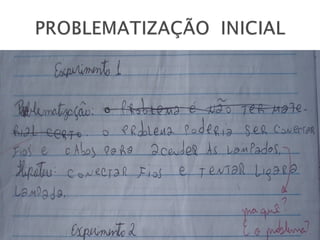 PROBLEMATIZAÇÃO INICIAL
Experimento 1
Problematização: o Problema é não ter mate-
rial certo. o problema poderia ser conectar
fios e cabos para acender as lampadas.
Hipótese: conectar fios e tentar ligar a
lampada.
Experimento 2
é o problema?